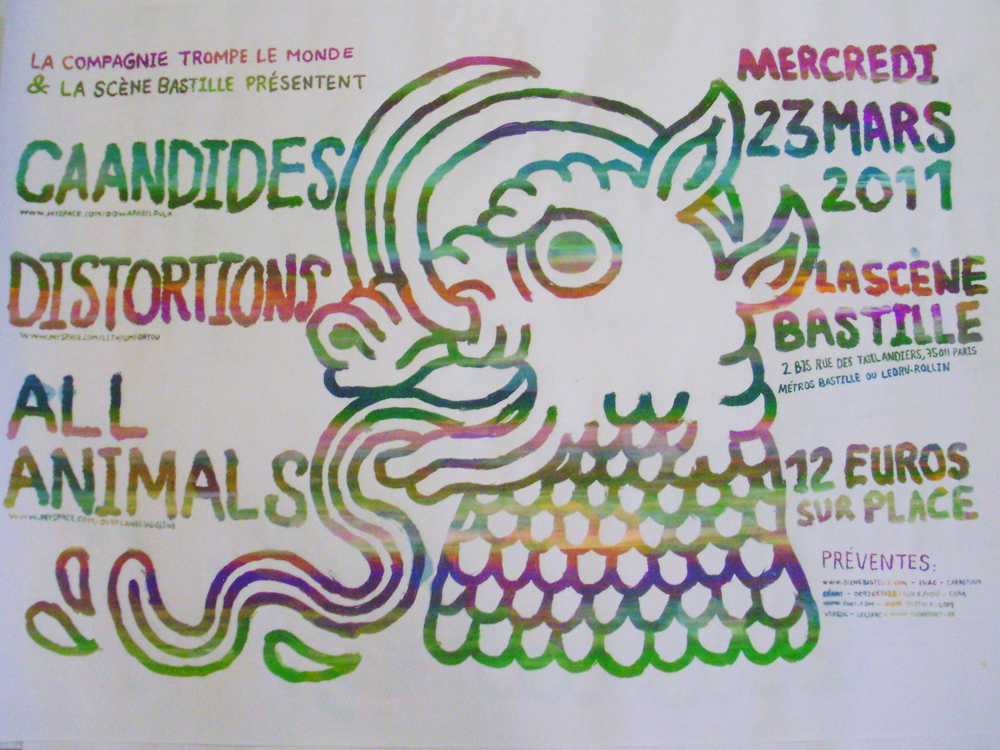 LA COMPAGNIE TROMPE LE MONDE
& LA SCÈNE BASTILLE PRÉSENTENT
CAANDIDES
DISTORTIONS
WWW.MYSPACE.COM/LITHIUMFORYOU
ALL
ANIMALS
MERCREDI
23 MARS
2011
LA SCÈNE
BASTILLE
2 BIS RUE DES TAILLANDIERS, 75011 PARIS
MÉTROS BASTILLE OU LEDRU-ROLLIN
12 EUROS
SUR PLACE
PRÉVENTES:
WWW.SCENEBASTILLE.COM - FNAC - CARREFOUR
GÉANT
VIRGIN - LECLERC - WWW.TICKETNET.FR